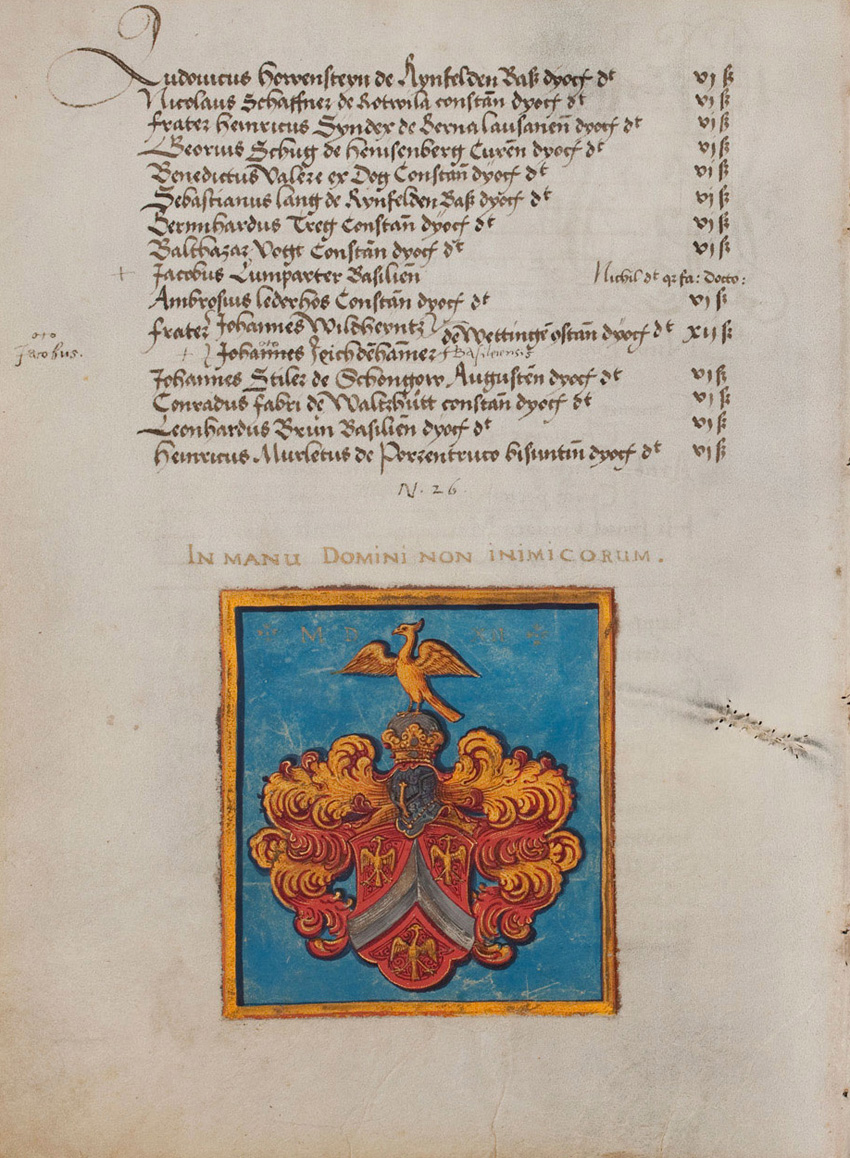 Ludouicus Howensteyn de Rynfelden Basz dyocz dt vj ß
Nicolaus Schaffner de Rotwila constañ dyocz dt vj ß
frater heinricus Synder de Berna lausaneñ dyocz dt vj ß
Georius Schug de henisenberg Cureñ dyocz dt vj ß
Benedictus Valere ex Dog Constañ dyocz dt vj ß
Sebastianus lang de Rynfelden Basz dyocz dt vj ß
Bernnhardus Treg Constañ dyocz dt vj ß
Balthazar Vogt Constañ dyocz dt vj ß
+ Jacobus Lumparter Basilieñ Nichil dt qr fa: docto:
Ambrosius lederhos Constañ dyocz dt vj ß
frater Johannes Wildherntz de Wettingē 9stañ dyocz dt xij ß
Jacobus. + Johannes Basiliensis
Johannes Stiler de Schongow Augusteñ dyocz dt vj ß
Conradus fabri de Waltzhůtt constañ dyocz dt vj ß
Leonhardus Brun Basilieñ dyocz dt vj ß
heinricus Murletus de Porzentruto bisuntiñ dyocz dt vj ß
N. 26.
IN MANU DOMINI NON INIMICORUM.
M D XII